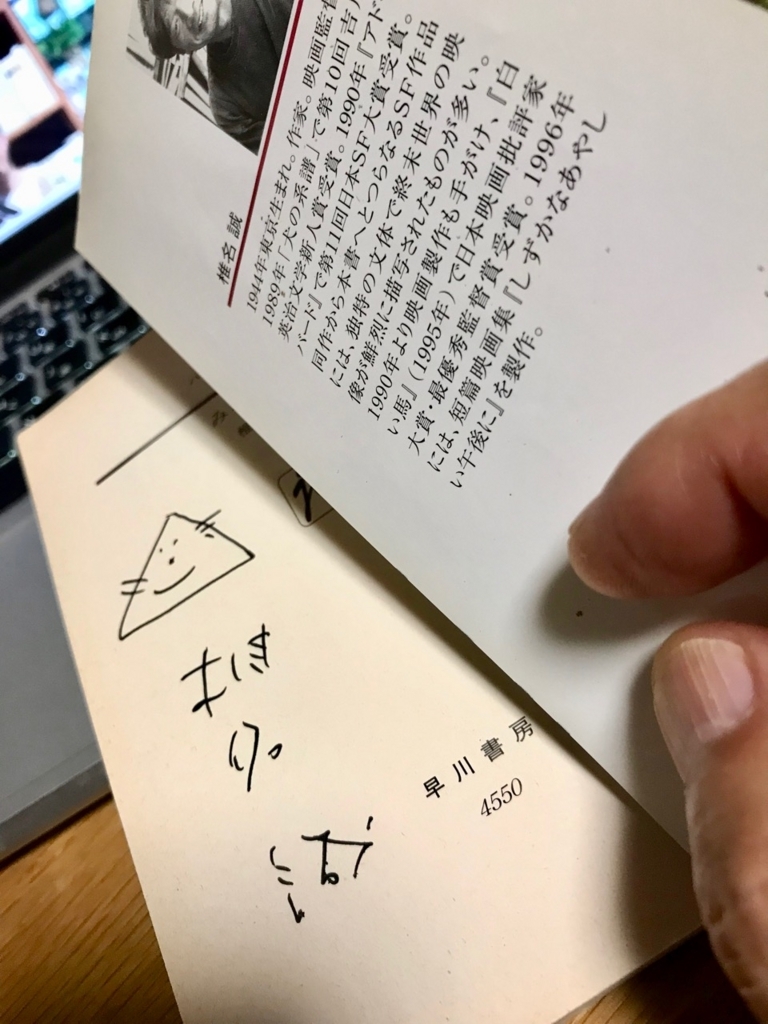 椎名 誠
1944年東京生まれ。作家。映画監督
1989年『犬の系譜』で第10回吉川
英治文学新人賞受賞。1990年『アド・
バード』で第11回日本SF大賞受賞。
同作から本書へとつらなるSF作品
には、独特の文体で終末世界の映
像が鮮烈に描写されたものが多い。
1990年より映画製作も手がけ、『白
い馬』(1995年)で日本映画批評家
大賞・最優秀監督賞受賞。1996年
には、短篇映画集『しずかなあやし
い午後に』を製作。
早川書房
4550